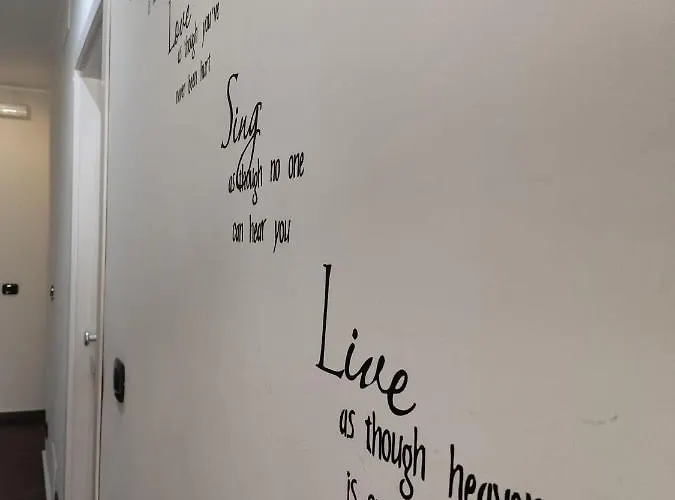 Love
as though you've
never been hurt
Sing
as though no one
can hear you
Live
as though heaven
is